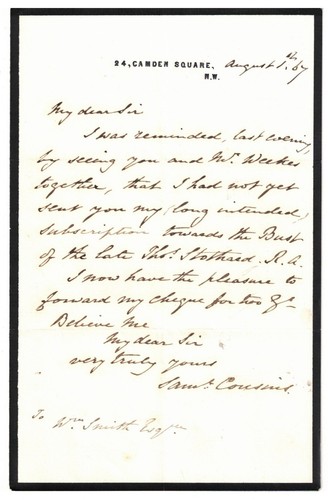 24, CAMDEN SQUARE, August 1st. 67
N.W.
My dear Sir
I was reminded, last evening,
by seeing you and Mr. Weekes
together, that I had not yet
sent you my (long intended)
subscription towards the Bust
of the late Thos. Stothard. R.A.
I now have the pleasure to
forward my cheque for two Gs.
Believe Me
My dear Sir
very truly yours
Saml. Cousins.
To
Wm Smith Esqre